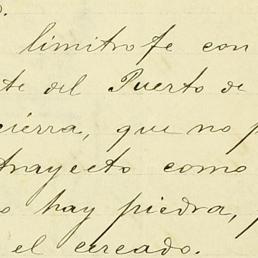 limítrofe con
te del Puerto de
cierra, que no p
trayecto como
o hay piedra, p
el cercado.